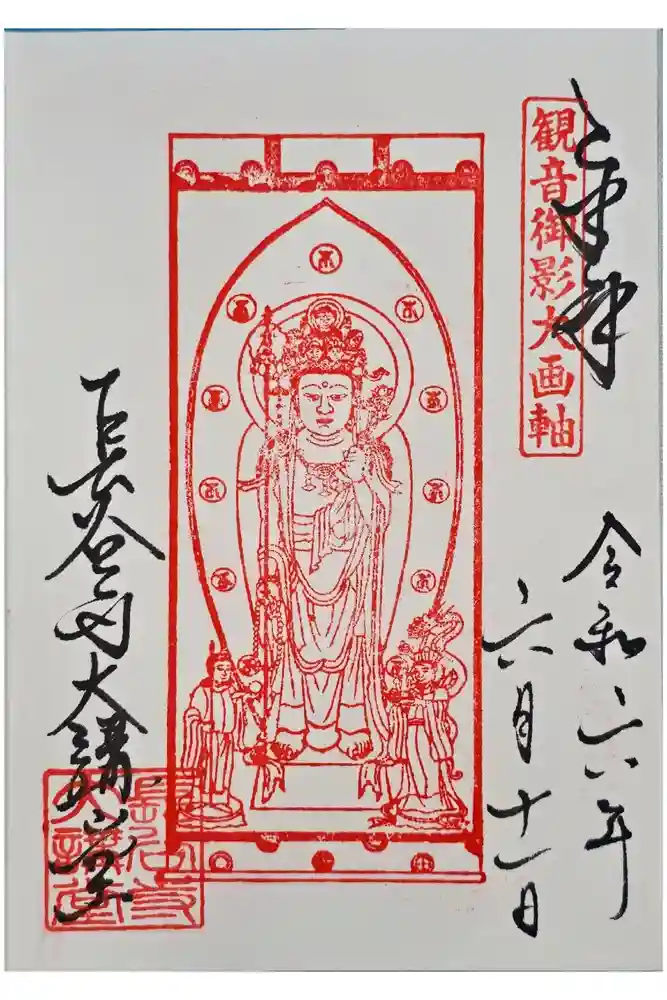 奉拝
観音御影大画軸
令和六年
六月十一日
長谷寺大講堂
長谷寺
大講堂